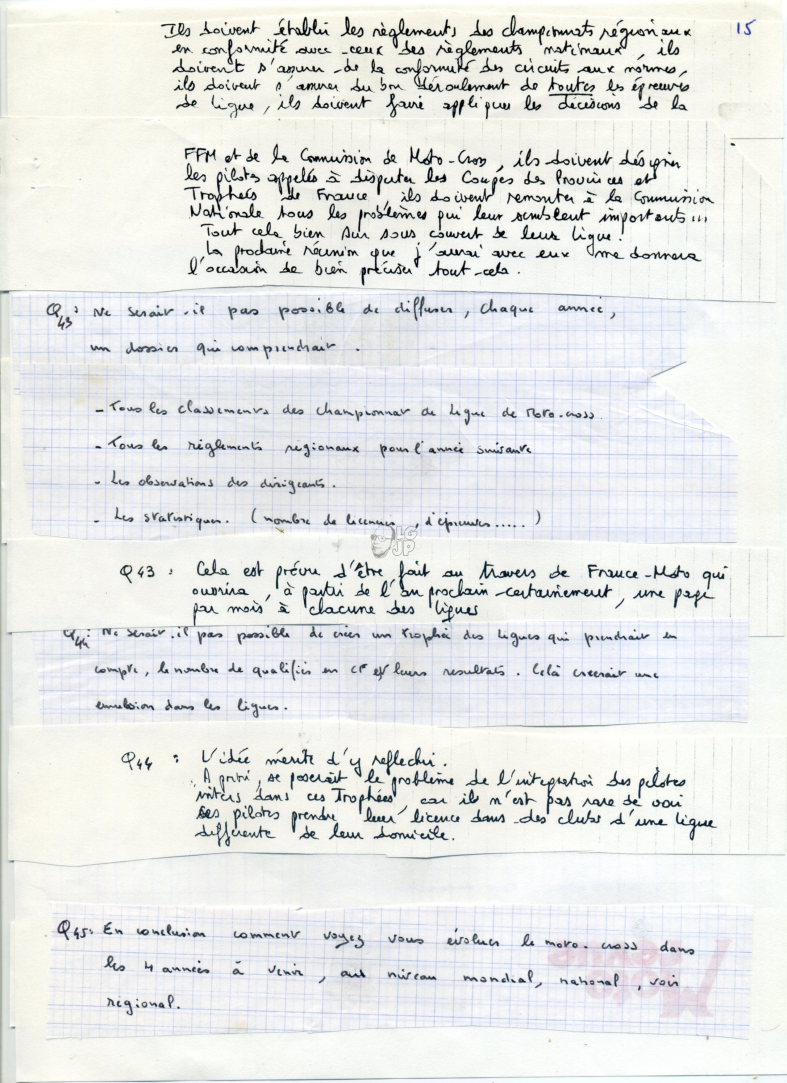 15
Ils doivent établir les règlements des championnats régionaux
en conformité avec ceux des règlements nationaux, ils
doivent s'assurer de la conformité des circuits aux normes,
ils doivent s'assurer du bon déroulement de toutes les épreuves
de ligue, ils doivent faire appliquer les décisions de la
FFM et de la Commission de Moto-Cross, ils doivent désigner
les pilotes appelés à disputer les Coupes des Provinces et
Trophées de France, ils doivent remonter à la Commission
Nationale tous les problèmes qui leur semblent importants...
Tout cela bien sur sous couvert de leur ligue.
La prochaine réunion que j'aurai avec eux me donnera
l'occasion de bien préciser tout cela.
Q43 : Ne serait-il pas possible de diffuser, chaque année,
un dossier qui comprendrait.
- Tous les classements des championnat de ligue de Moto-cross.
- Tous les règlements régionaux pour l'année suivante
- Les observations des dirigeants.
- Les statistiques. (nombre de licences, d'épreuves.....)
LG
JP
Q43 : Cela est prévu d'être fait au travers de France-Moto qui
ouvrira, à partir de l'an prochain certainement, une page
par mois à chacune des ligues
Q44 : Ne serait-il pas possible de créer un trophée des ligues qui prendrait en
compte, le nombre de qualifiés en CF et leurs resultats. Celà creerait une
emulsion dans les ligues.
Q44 : L'idée mérite d'y reflechir.
A priori, se poserait le problème de l'integration des pilotes
inters dans ces Trophées, car il n'est pas rare de voir
des pilotes prendre leur licence dans des clubs d'une ligue
differente de leur domicile.
Q45: En conclusion comment voyez vous évoluer le moto-cross dans
les 4 années à venir, au niveau mondial, national, voir
regional.